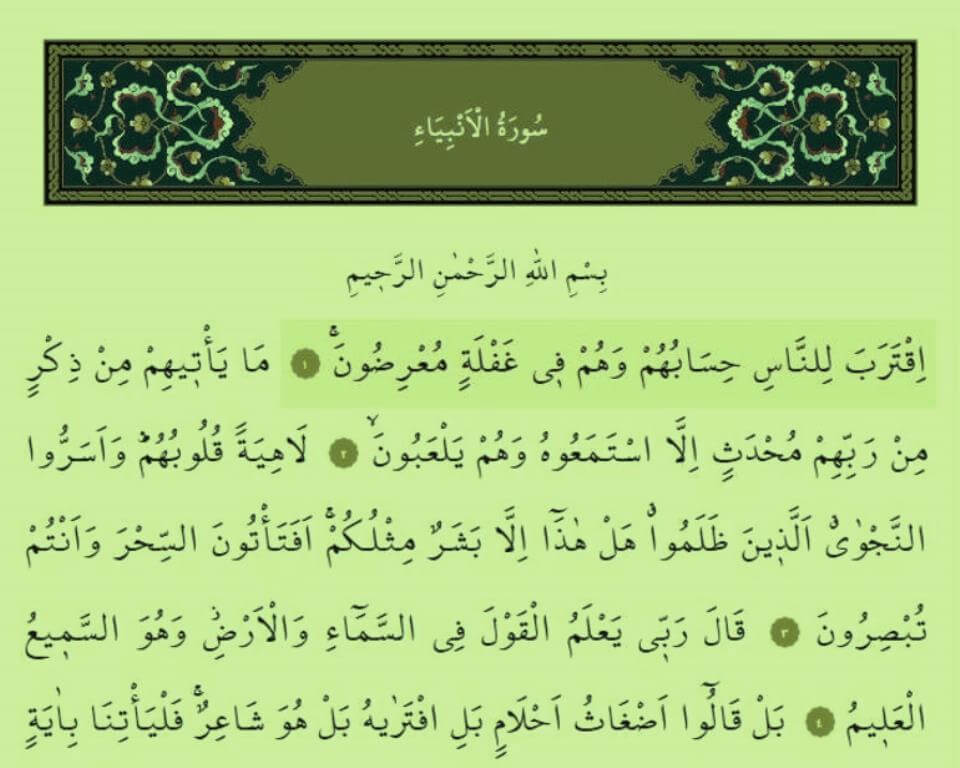 سُورَةُ الْاَنْبِيَاءِ
بِسْمِ اللّٰهِ الرَّحْمٰنِ الرَّحٖيمِ
اِقْتَرَبَ لِلنَّاسِ حِسَابُهُمْ وَهُمْ فٖى غَفْلَةٍ مُعْرِضُونَۚ ١ مَا يَأْتٖيهِمْ مِنْ ذِكْرٍ
مِنْ رَبِّهِمْ مُحْدَثٍ اِلَّا اسْتَمَعُوهُ وَهُمْ يَلْعَبُونَۙ ٢ لَاهِيَةً قُلُوبُهُمْؕ وَاَسَرُّوا
النَّجْوٰىۗ اَلَّذٖينَ ظَلَمُواۗ هَلْ هٰذَٓا اِلَّا بَشَرٌ مِثْلُكُمْۚ اَفَتَأْتُونَ السِّحْرَ وَاَنْتُمْ
تُبْصِرُونَ ٣ قَالَ رَبّٖى يَعْلَمُ الْقَوْلَ فِى السَّمَٓاءِ وَالْاَرْضِؗ وَهُوَ السَّمٖيعُ
الْعَلٖيمُ ٤ بَلْ قَالُٓوا اَضْغَاثُ اَحْلَامٍ بَلِ افْتَرٰيهُ بَلْ هُوَ شَاعِرٌۚ فَلْيَأْتِنَا بِاٰيَةٍ